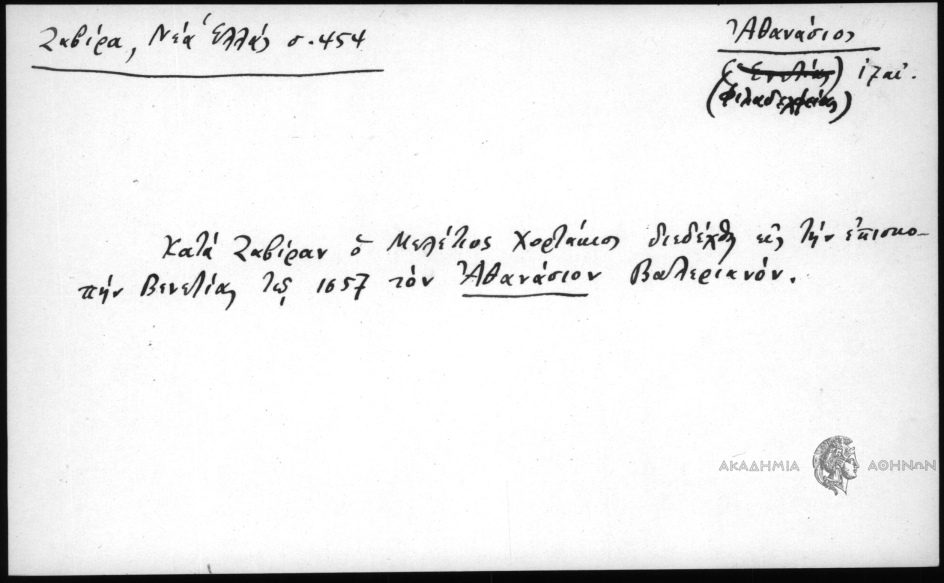 Ζαβίρα, Νέα Ἑλλάς σ. 454
Ἀθανάσιος
(Βενετίας) ιζ αἰ.
(Φιλαδελφείας)
Κατά Ζαβίραν ὁ Μελέτιος Χορτάκιος διεδέχθη εἰς τήν ἐπισκο-
πήν Βενετίας τῷ 1657 τόν Ἀθανάσιον Βαλεριανόν.
ΑΚΑΔΗΜΙΑ ΑΘΗΝΩΝ